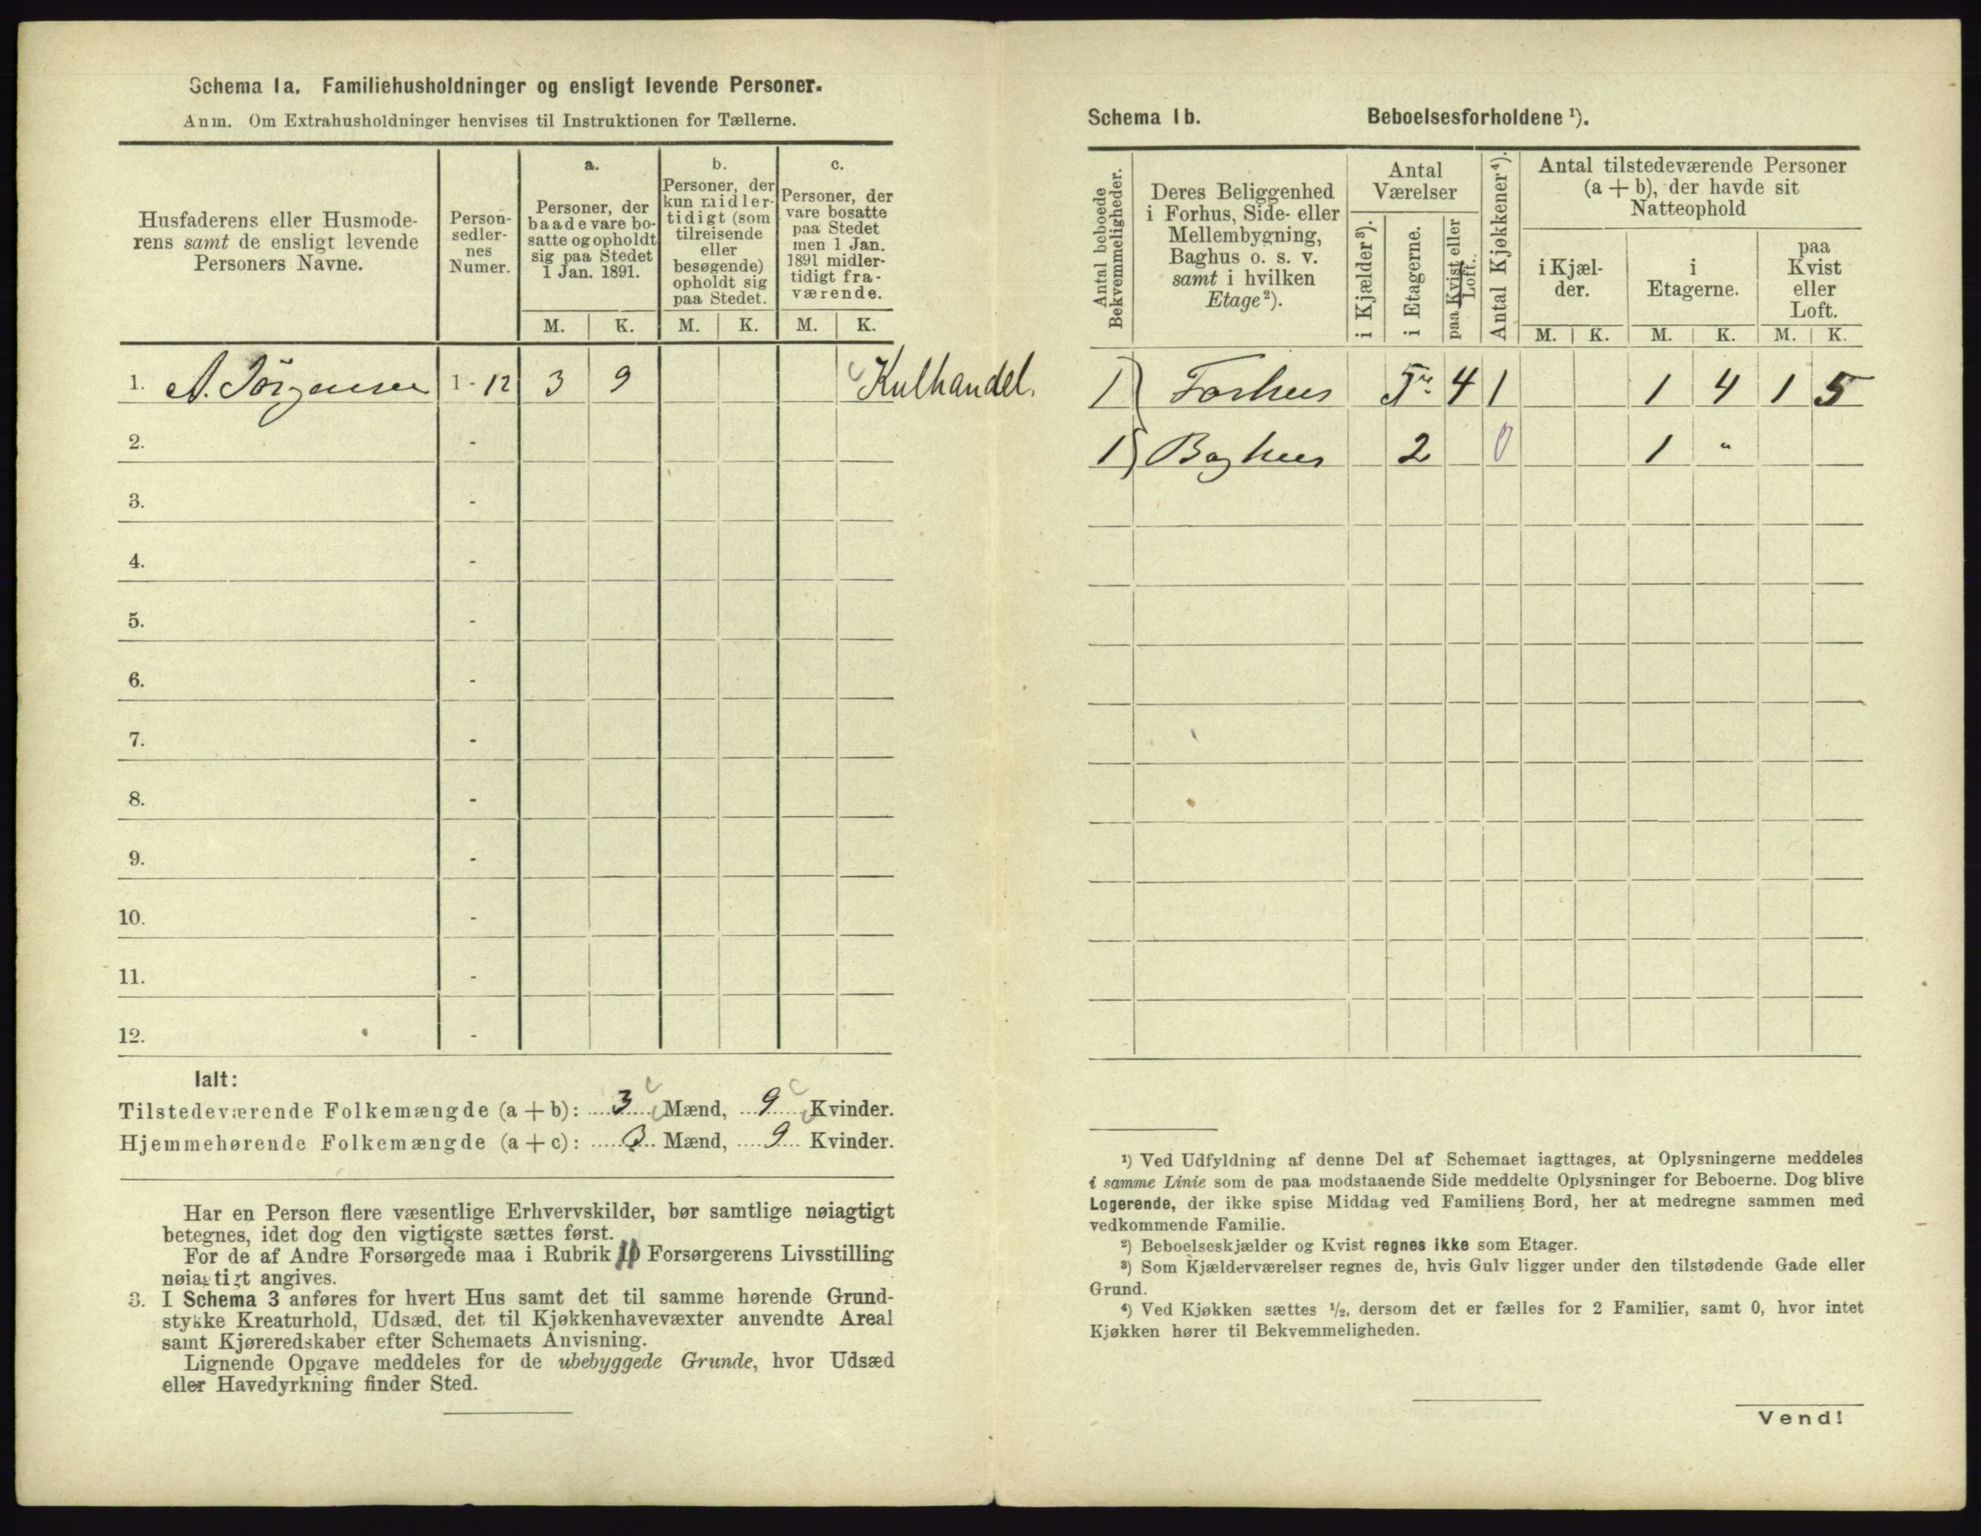 Schema 1a. Familiehusholdninger og ensligt levende Personer.
Anm. Om Extrahusholdninger henvises til Instruktionen for Tællerne.
Husfaderens eller Husmode-
rens samt de ensligt levende
Personers Navne.
Person-
sedler-
nes
Numer.
a.
Personer, der
baade vare bo-
satte og opholdt
sig paa Stedet
1 Jan. 1891.
b.
Personer, der
kun midler-
tidigt (som
tilreisende
eller
besøgende)
opholdt sig
paa Stedet.
c.
Personer, der
vare bosatte
paa Stedet
men 1 Jan.
1891 midler-
tidigt fra-
værende.
M. K. M. K. M. K.
1. A. Jörgensen 1 - 12 3 9 Kulhandel.
2. -
3. -
4. -
5. -
6. -
7. -
8. -
9. -
10. -
11. -
12. -
Ialt:
Tilstedeværende Folkemængde (a + b): 3 Mænd, 9 Kvinder.
Hjemmehørende Folkemængde (a + c): 3 Mænd, 9 Kvinder.
Har en Person flere væsentlige Erhvervskilder, bør samtlige nøiagtigt
betegnes, idet dog den vigtigste sættes først.
For de af Andre Forsørgede maa i Rubrik 10 Forsørgerens Livsstilling
nøiagtigt angives.
3. I Schema 3 anføres for hvert Hus samt det til samme hørende Grund-
stykke Kreaturhold, Udsæd, det til Kjøkkenhavevæxter anvendte Areal
samt Kjøreredskaber efter Schemaets Anvisning.
Lignende Opgave meddeles for de ubebyggede Grunde, hvor Udsæd
eller Havedyrkning finder Sted.
Schema 1b. Beboelsesforholdene ¹).
Antal beboede
Bekvemmeligheder.
Deres Beliggenhed
i Forhus, Side- eller
Mellembygning,
Baghus o. s. v.
samt i hvilken
Etage²).
Antal
Værelser
i Kjælder³).
i Etagerne.
paa Kvist eller
Loft.
Antal Kjøkkener⁴).
Antal tilstedeværende Personer
(a + b), der havde sit
Natteophold
i Kjæl-
der.
i
Etagerne.
paa
Kvist
eller
Loft.
M. K. M. K. M. K.
1) Forhus 5 4 1 1 4 1 5
1) Baghus 2 0 1 "
¹) Ved Udfyldning af denne Del af Schemaet iagttages, at Oplysningerne meddeles
i samme Linie som de paa modstaaende Side meddelte Oplysninger for Beboerne. Dog blive
Logerende, der ikke spise Middag ved Familiens Bord, her at medregne sammen med
vedkommende Familie.
²) Beboelseskjælder og Kvist regnes ikke som Etager.
³) Som Kjælderværelser regnes de, hvis Gulv ligger under den tilstødende Gade eller
Grund.
⁴) Ved Kjøkken sættes ½, dersom det er fælles for 2 Familier, samt 0, hvor intet
Kjøkken hører til Bekvemmeligheden.
Vend!